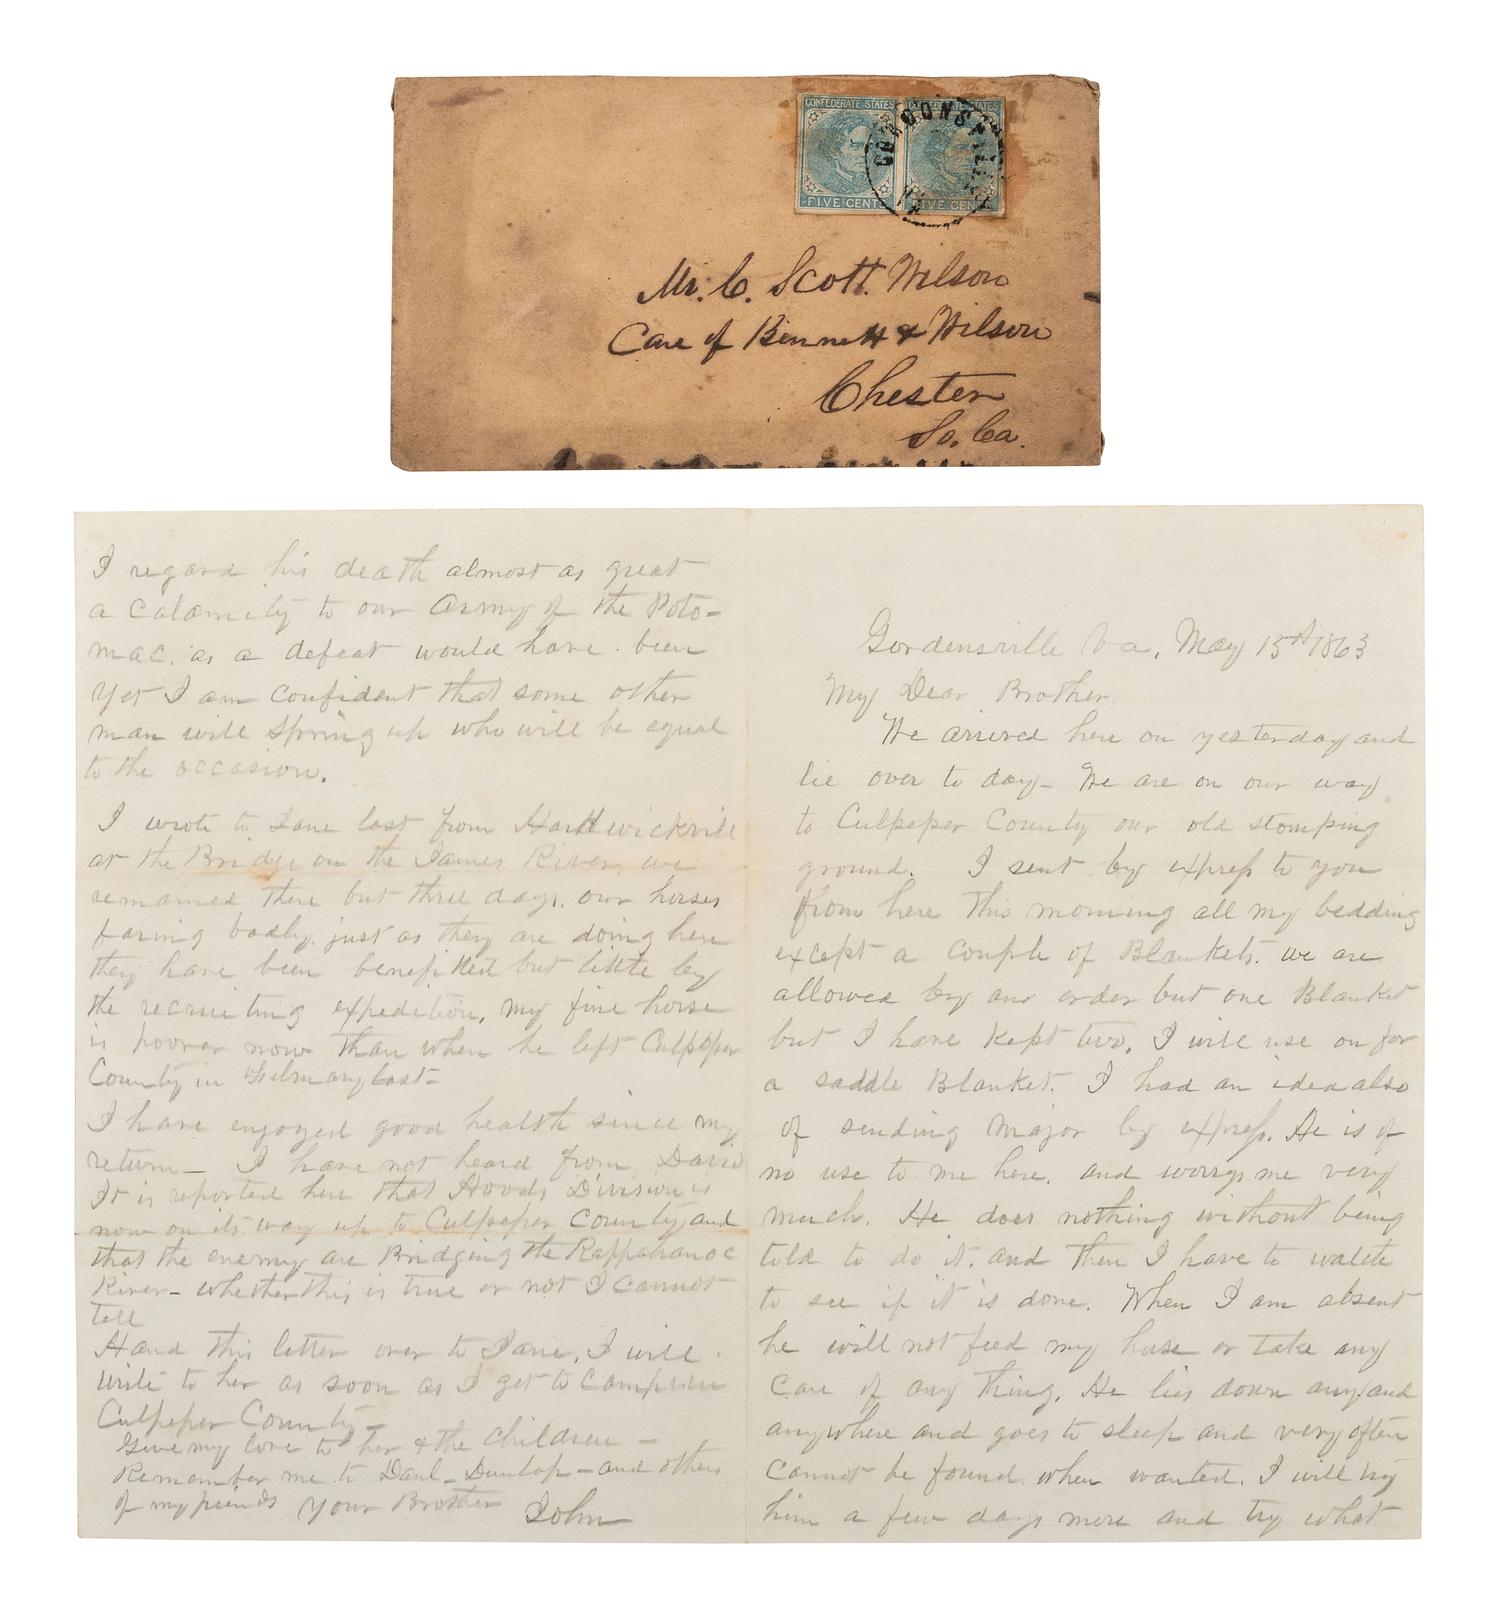 CONFEDERATE STATES
FIVE CENTS
CONFEDERATE STATES
FIVE CENTS
GORDONSVILLE
Mr. C. Scott Wilson
Care of Bennett & Wilson
Chester
So. Ca.
Gordensville Va, May 15th 1863
My Dear Brother
We arrived here on yesterday and
lie over to day - We are on our way
to Culpeper County our old stomping
ground. I sent by express to you
from here this morning all my bedding
except a couple of Blankets. we are
allowed by our order but one Blanket
but I have kept two, I will use on for
a saddle Blanket. I had an idea also
of sending Major by express. He is of
no use to me here. and worrys me very
much. He does nothing without being
told to do it. and then I have to waite
to see if it is done. When I am absent
he will not feed my horse or take any
care of any thing. He lies down any and
anywhere and goes to sleep and very often
cannot be found when wanted. I will try
him a few days more and try what
I regard his death almost as great
a calamity to our Army of the Poto-
mac. as a defeat would have been
yet I am confident that some other
man will spring up who will be equal
to the occasion.
I wrote to Jane last from Hardwickville
at the Bridge on the James River, we
remained there but three days. our horses
faring badly. just as they are doing here
they have been benefitted but little by
the recruiting expedition, my fine horse
is poorer now than when he left Culpeper
County in February last -
I have enjoyed good health since my
return - I have not heard from David
It is reported here that Hoods Division is
now on its way up to Culpeper County and
that the enemy are Bridging the Rappahanoc
River - whether this is true or not I cannot
tell
Hand this letter over to Jane, I will
write to her as soon as I get to Camp in
Culpeper County -
Give my love to her & the children -
Remember me to Danl - Dunlap - and others
of my friends Your Brother John